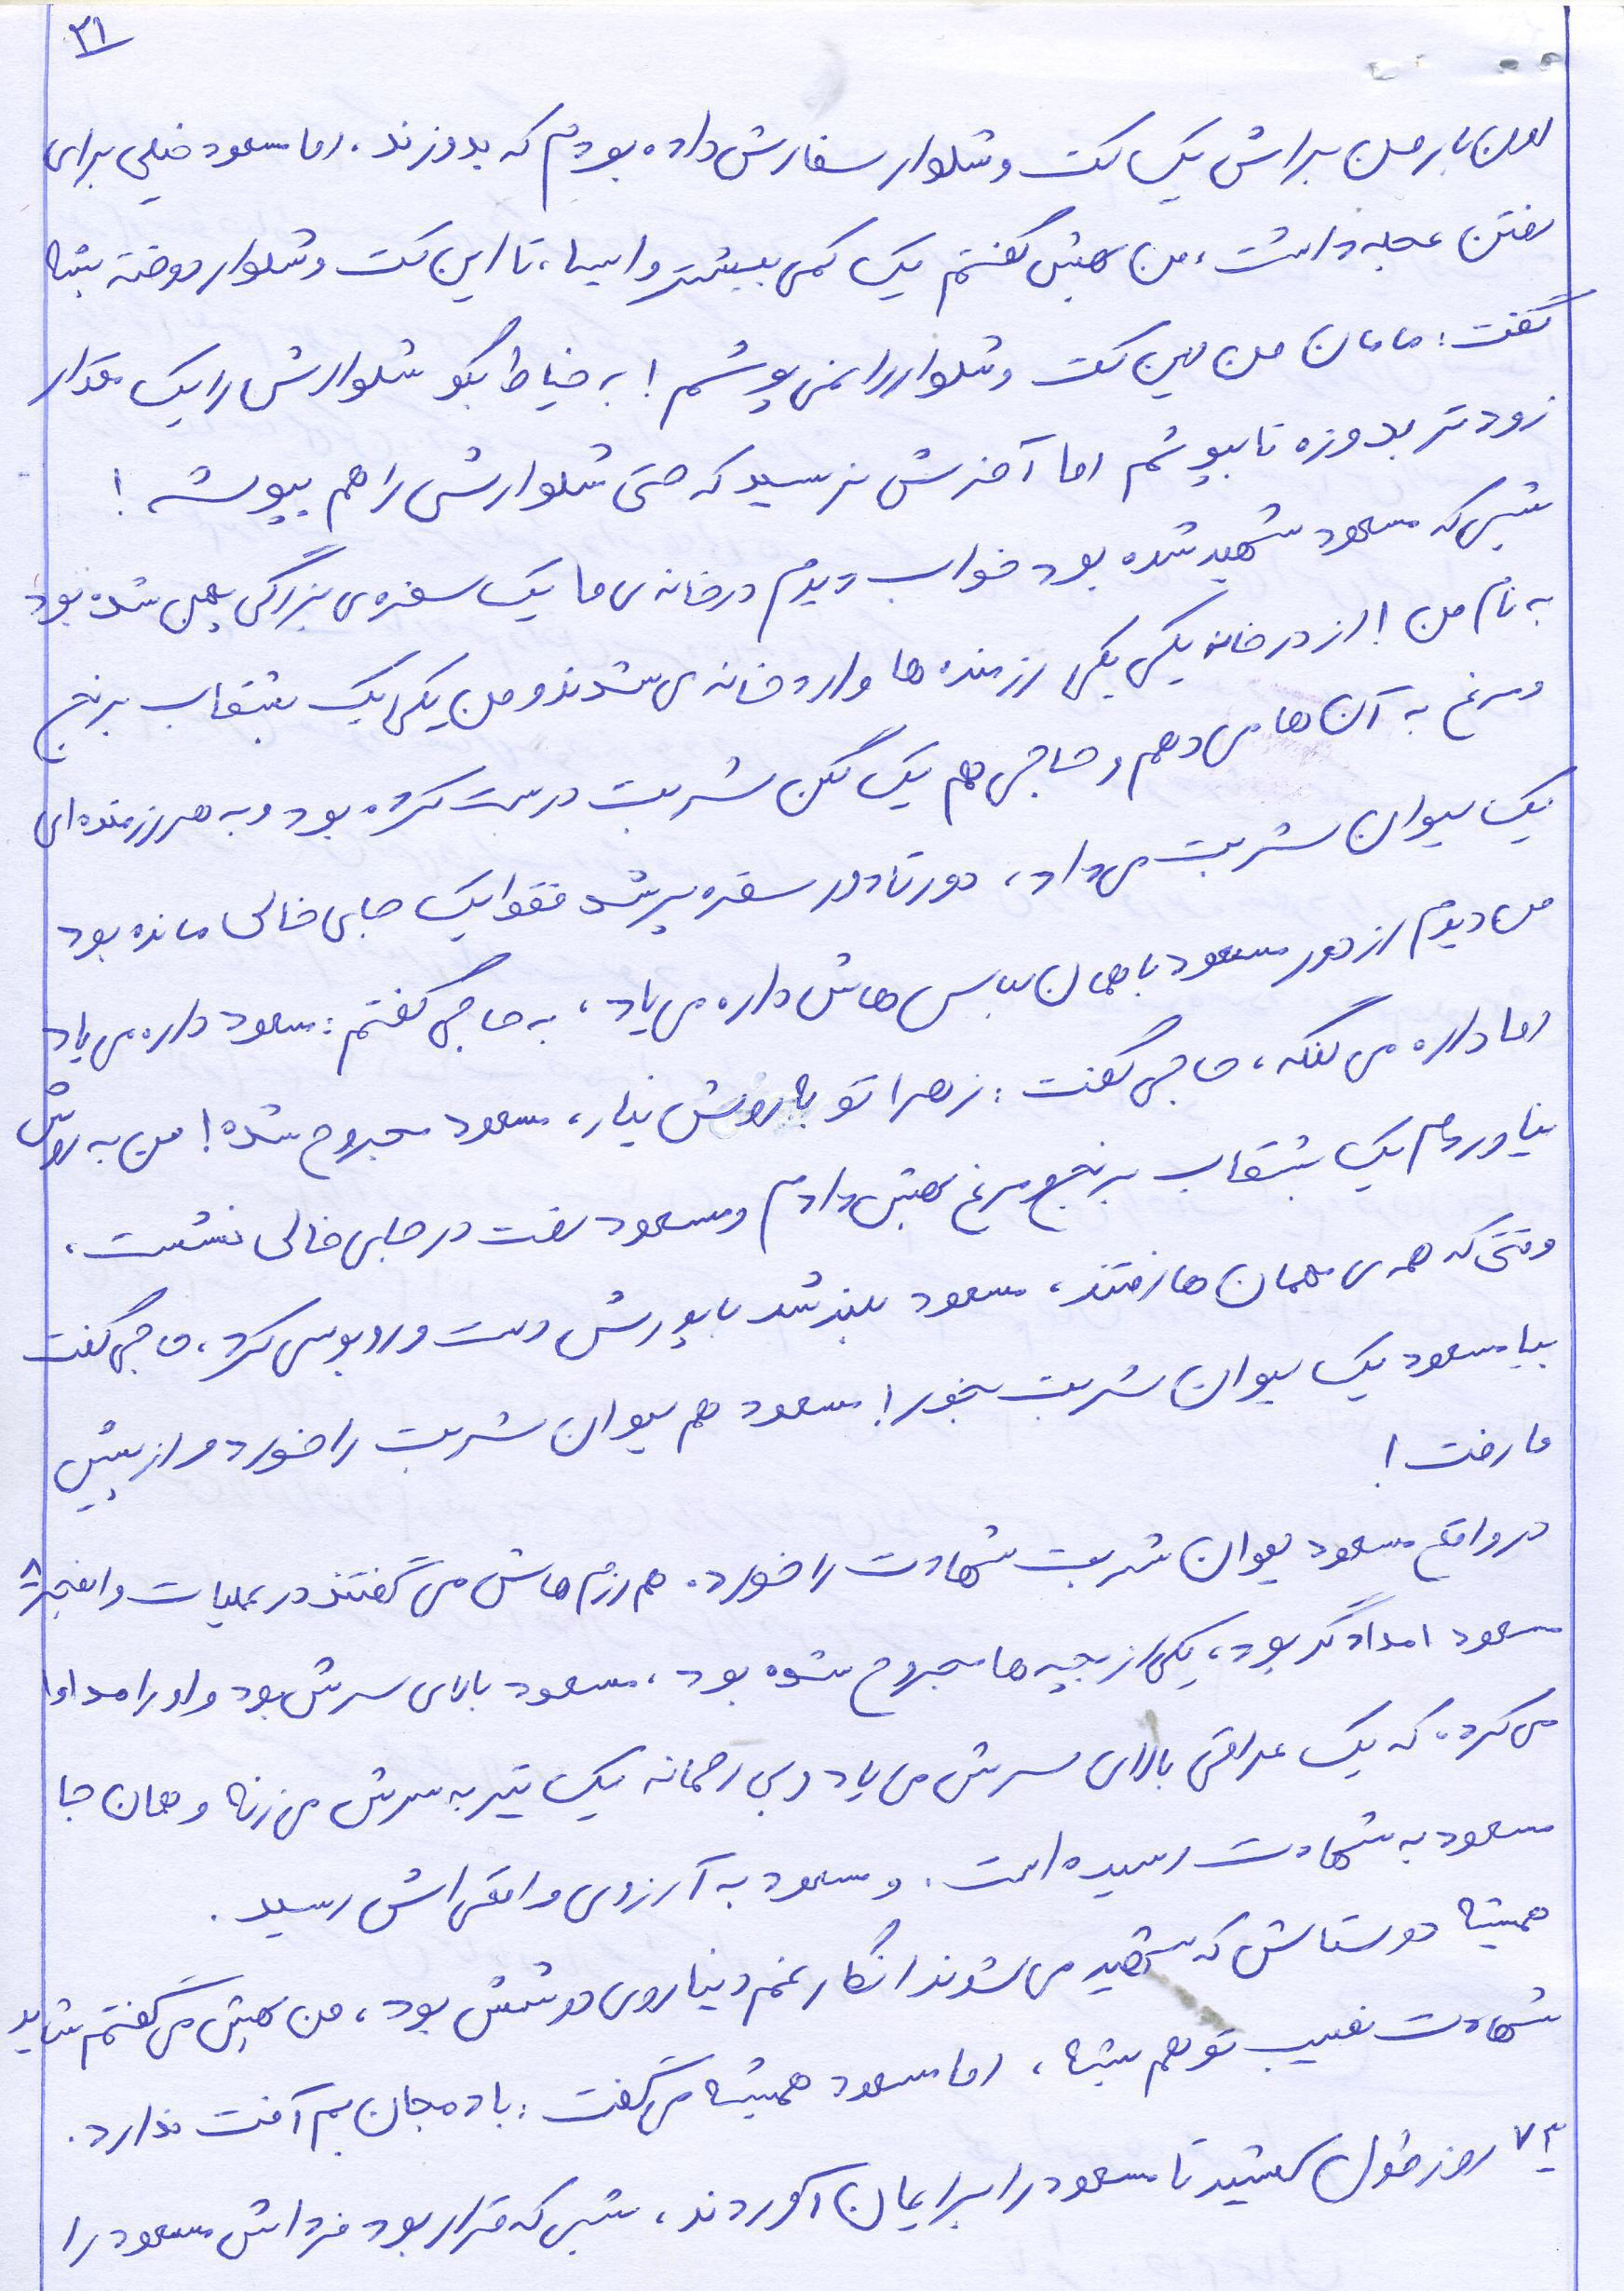 ۲۱
اون بار من براش یک کت و شلوار سفارش داده بودم که بدوزند. اما مسعود خیلی برای
رفتن عجله داشت، من بهش گفتم یک کمی بیشتر وایسا، تا این کت و شلوار دوخته بشه
گفت: مامان من این کت و شلوار را نمی پوشم! به خیاط بگو شلوارش را یک مقدار
زودتر بدوزه تا بپوشم اما آخرش نرسید که حتی شلوارش را هم بپوشه!
شبی که مسعود شهید شده بود خواب دیدم در خانه ی ما یک سفره ی بزرگی پهن شده بود
به نام من! از در خانه یکی یکی رزمنده ها وارد خانه می شدند و من یکی یک بشقاب برنج
و مرغ به آن ها می دهم و حاجی هم یک لگن شربت درست کرده بود و به هر رزمنده ای
یک لیوان شربت می داد، دور تا دور سفره پر شد فقط یک جای خالی مانده بود
من دیدم از دور مسعود با همان لباس هاش داره می یاد، به حاجی گفتم: مسعود داره می یاد
اما داره می لنگه، حاجی گفت: زهرا تو به روش نیار، مسعود مجروح شده! من به روش
نیاوردم یک بشقاب برنج و مرغ بهش دادم و مسعود رفت در جای خالی نشست.
وقتی که همه ی مهمان ها رفتند، مسعود بلند شد با پدرش دست و روبوسی کرد، حاجی گفت
بیا مسعود یک لیوان شربت بخور! مسعود هم لیوان شربت را خورد و از پیش
ما رفت!
در واقع مسعود لیوان شربت شهادت را خورد. هم رزم هاش می گفتند در عملیات والفجر ۸
مسعود امدادگر بود، یکی از بچه ها مجروح شده بود، مسعود بالای سرش بود و او را مداوا
می کرد. که یک عراقی بالای سرش می یاد و بی رحمانه یک تیر به سرش می زنه و همان جا
مسعود به شهادت رسیده است. و مسعود به آرزوی واقعی اش رسید.
همیشه دوستاش که شهید می شوند انگار غم دنیا روی دوشش بود، من بهش می گفتم شاید
شهادت نصیب تو هم بشه، اما مسعود همیشه می گفت: بادمجان بم آفت ندارد.
۷۳ روز طول کشید تا مسعود را برایمان آوردند، شبی که قرار بود فرداش مسعود را